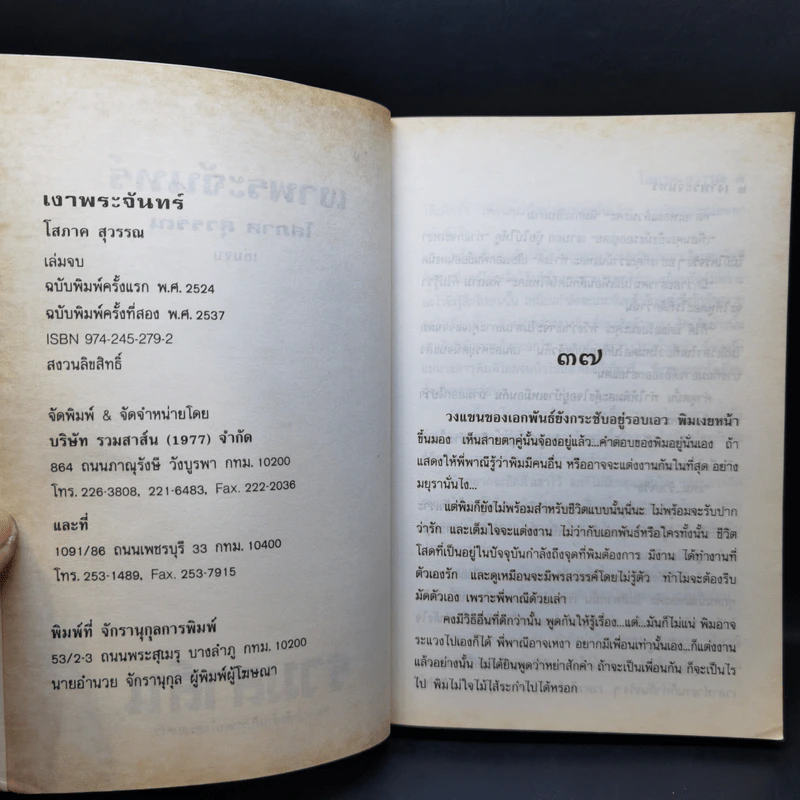 เงาพระจันทร์
โสภาค สุวรรณ
เล่มจบ
ฉบับพิมพ์ครั้งแรก พ.ศ. 2524
ฉบับพิมพ์ครั้งที่สอง พ.ศ. 2537
ISBN 974-245-279-2
สงวนลิขสิทธิ์
จัดพิมพ์ & จัดจำหน่ายโดย
บริษัท รวมสาส์น (1977) จำกัด
864 ถนนภาณุรังษี วังบูรพา กทม. 10200
โทร. 226-3808, 221-6483, Fax. 222-2036
และที่
1091/86 ถนนเพชรบุรี 33 กทม. 10400
โทร. 253-1489, Fax. 253-7915
พิมพ์ที่ จักรานุกูลการพิมพ์
53/2-3 ถนนพระสุเมรุ บางลำภู กทม. 10200
นายอำนวย จักรานุกูล ผู้พิมพ์ผู้โฆษณา
๓๗
วงแขนของเอกพันธ์ยังกระชับอยู่รอบเอว พิมเงยหน้า
ขึ้นมอง เห็นสายตาคู่นั้นจ้องอยู่แล้ว...คำตอบของพิมอยู่นั่นเอง ถ้า
แสดงให้พี่พาณีรู้ว่าพิมมีคนอื่น หรืออาจจะแต่งงานกันในที่สุด อย่าง
มยุรานั่นไง...
แต่พิมก็ยังไม่พร้อมสำหรับชีวิตแบบนั้นนี่นะ ไม่พร้อมจะรับปาก
ว่ารัก และเต็มใจจะแต่งงาน ไม่ว่ากับเอกพันธ์หรือใครทั้งนั้น ชีวิต
โสดที่เป็นอยู่ในปัจจุบันกำลังถึงจุดที่พิมต้องการ มีงาน ได้ทำงานที่
ตัวเองรัก และดูเหมือนจะมีพรสวรรค์โดยไม่รู้ตัว ทำไมจะต้องรีบ
มัดตัวเอง เพราะพี่พาณีด้วยเล่า
คงมีวิธีอื่นที่ดีกว่านั้น พูดกันให้รู้เรื่อง...แต่...มันก็ไม่แน่ พิมอาจ
ระแวงไปเองก็ได้ พี่พาณีอาจเหงา อยากมีเพื่อนเท่านั้นเอง...ก็แต่งงาน
แล้วอย่างนั้น ไม่ได้ยินพูดว่าหย่าสักคำ ถ้าจะเป็นเพื่อนกัน ก็จะเป็นไร
ไป พิมไม่ใจไม้ไส้ระกำไปได้หรอก